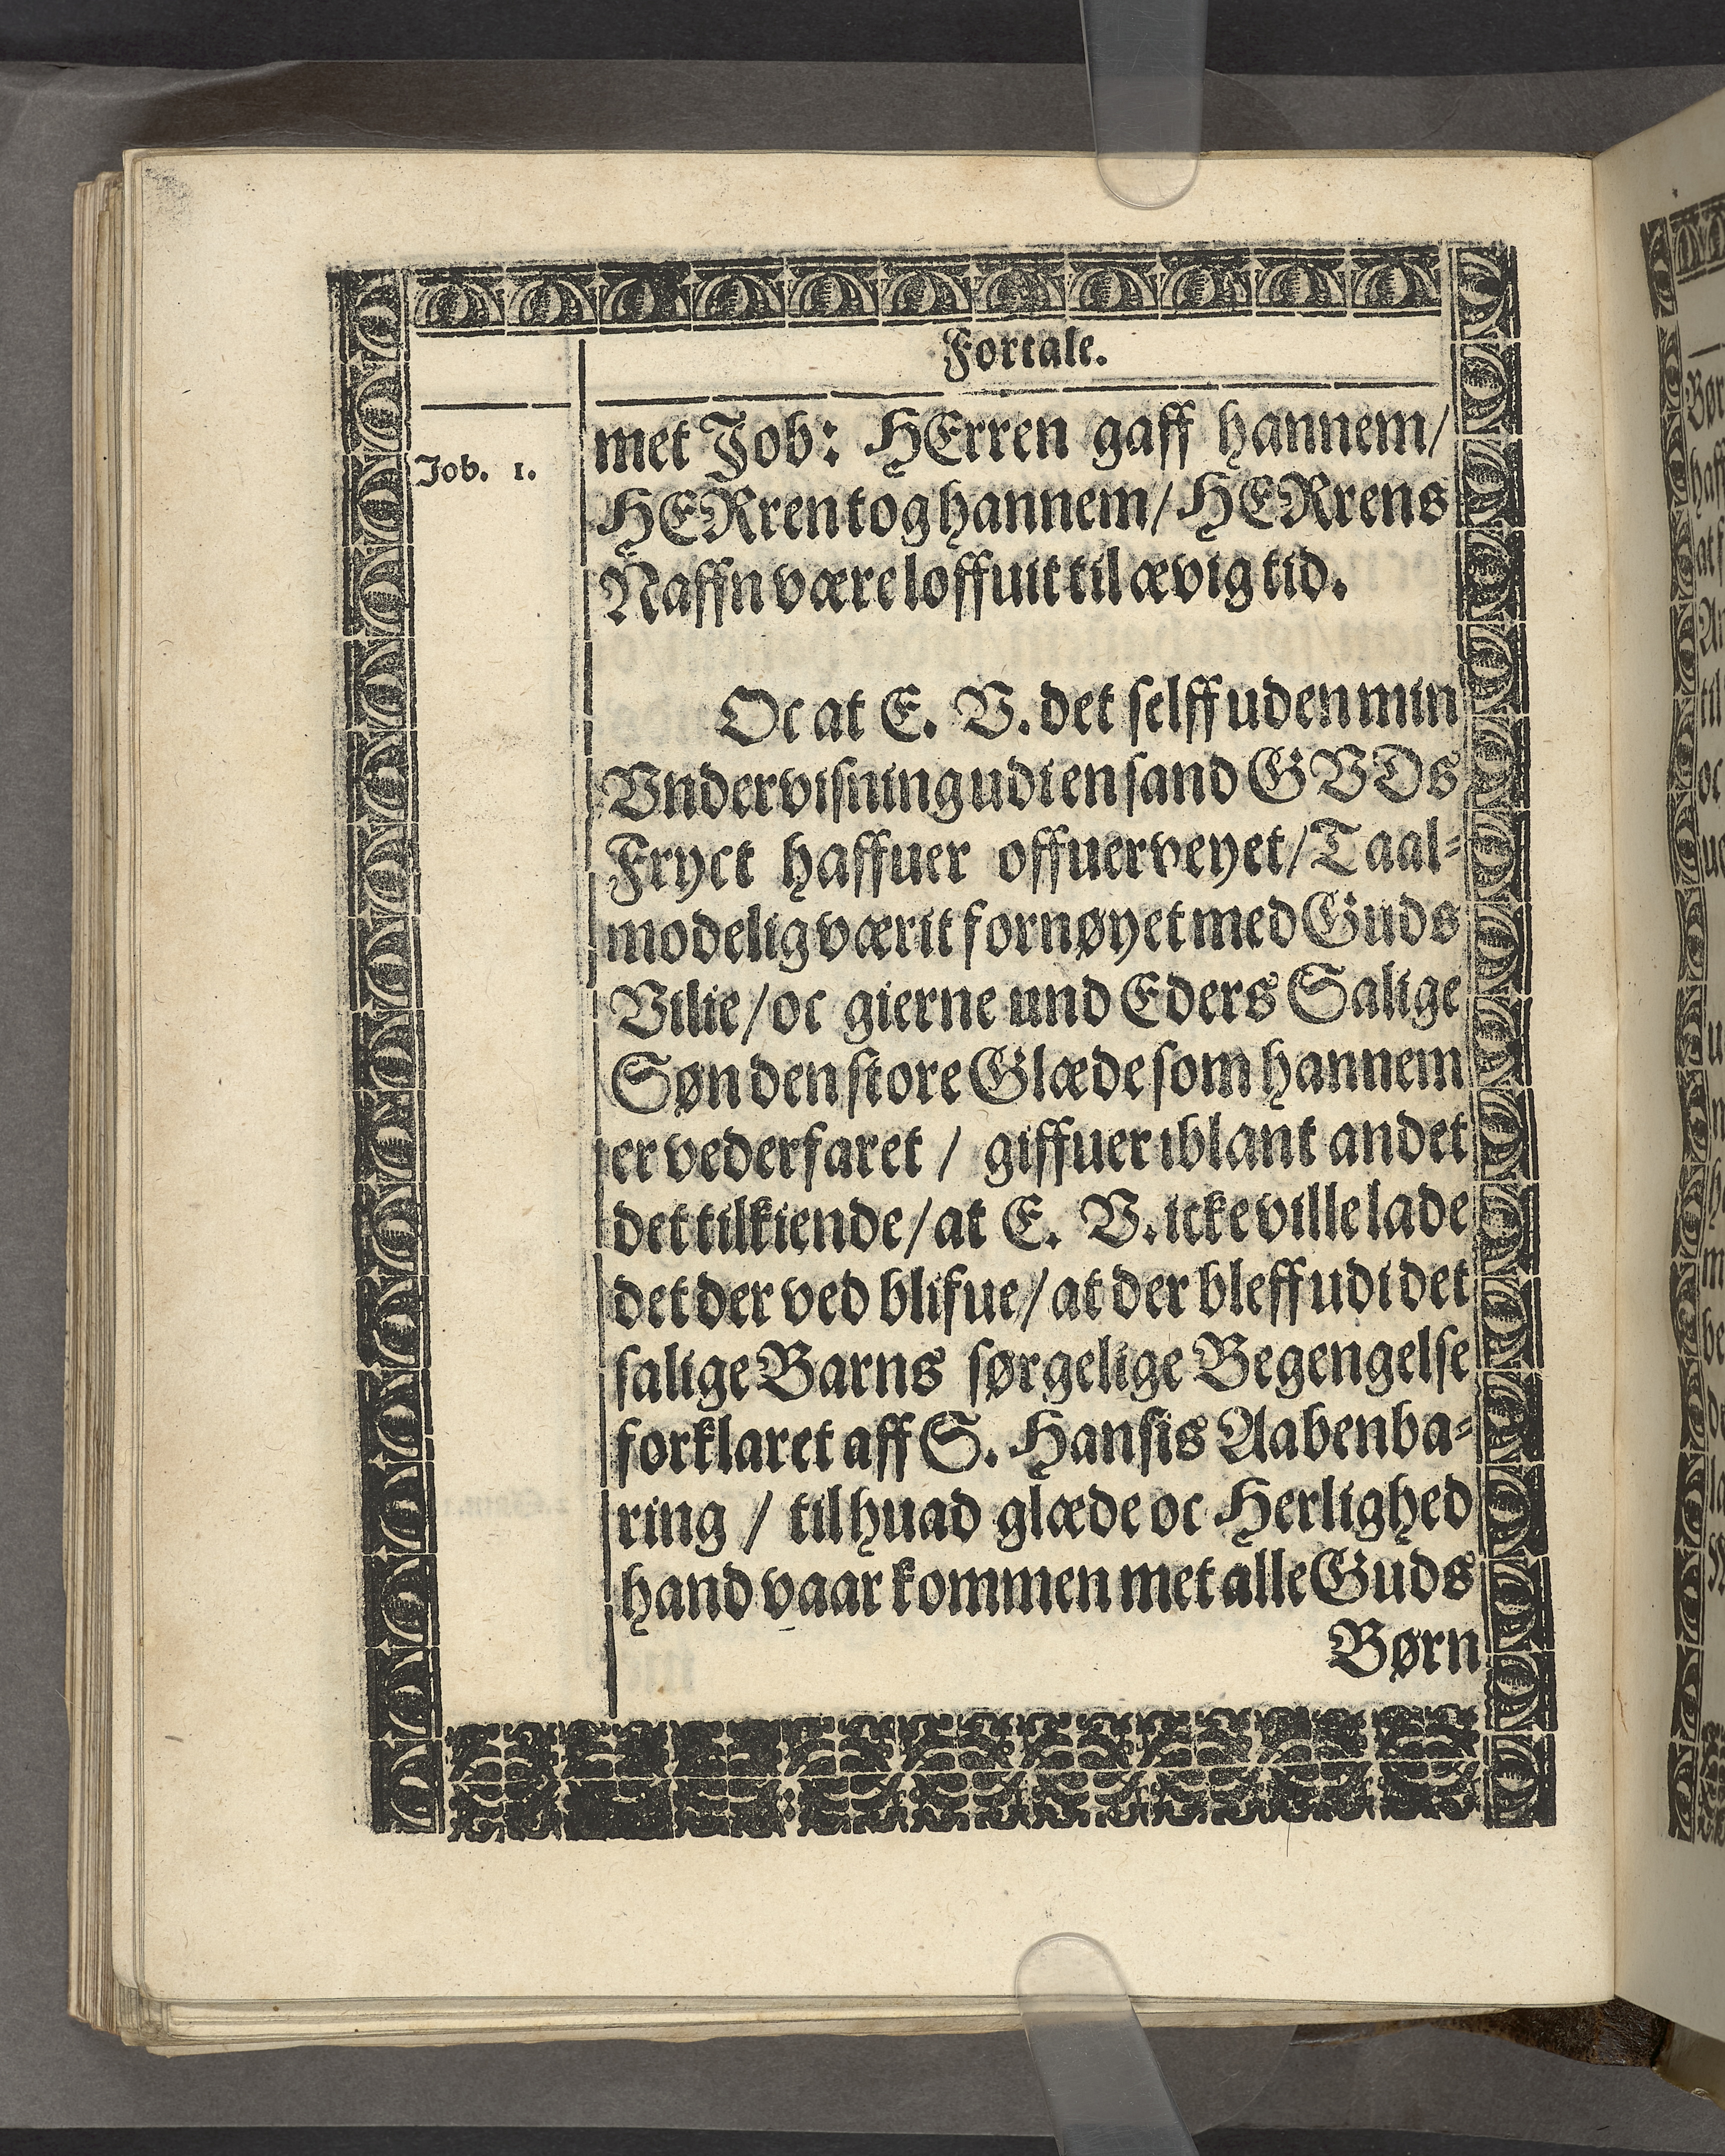 Fortale.
Job. 1.
met Job: HErren gaff hannem/
HERren tog hannem/ HERrens
Naffn være loffuit til ævig tid.
Oc at E. V. det selff uden min
Vndervisning udi en sand GVDs
Fryct haffuer offuerveyet/ Taal-
modelig værit fornøyet med Guds
Vilie/ oc gierne und Eders Salige
Søn den store Glæde som hannem
er vederfaret / giffuer iblant andet
det tilkiende/ at E. V. icke ville lade
det der ved blifue/ at der bleff udi det
salige Barns sørgelige Begengelse
forklaret aff S. Hansis Aabenba-
ring / til huad glæde oc Herlighed
hand vaar kommen met alle Guds
Børn